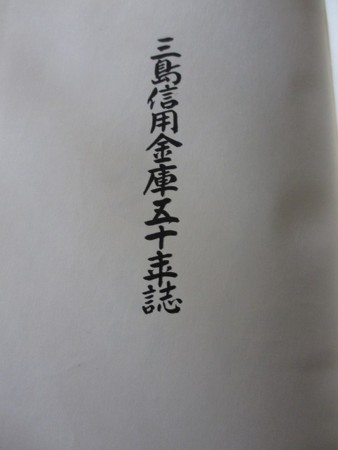 三島信用金庫五十年誌